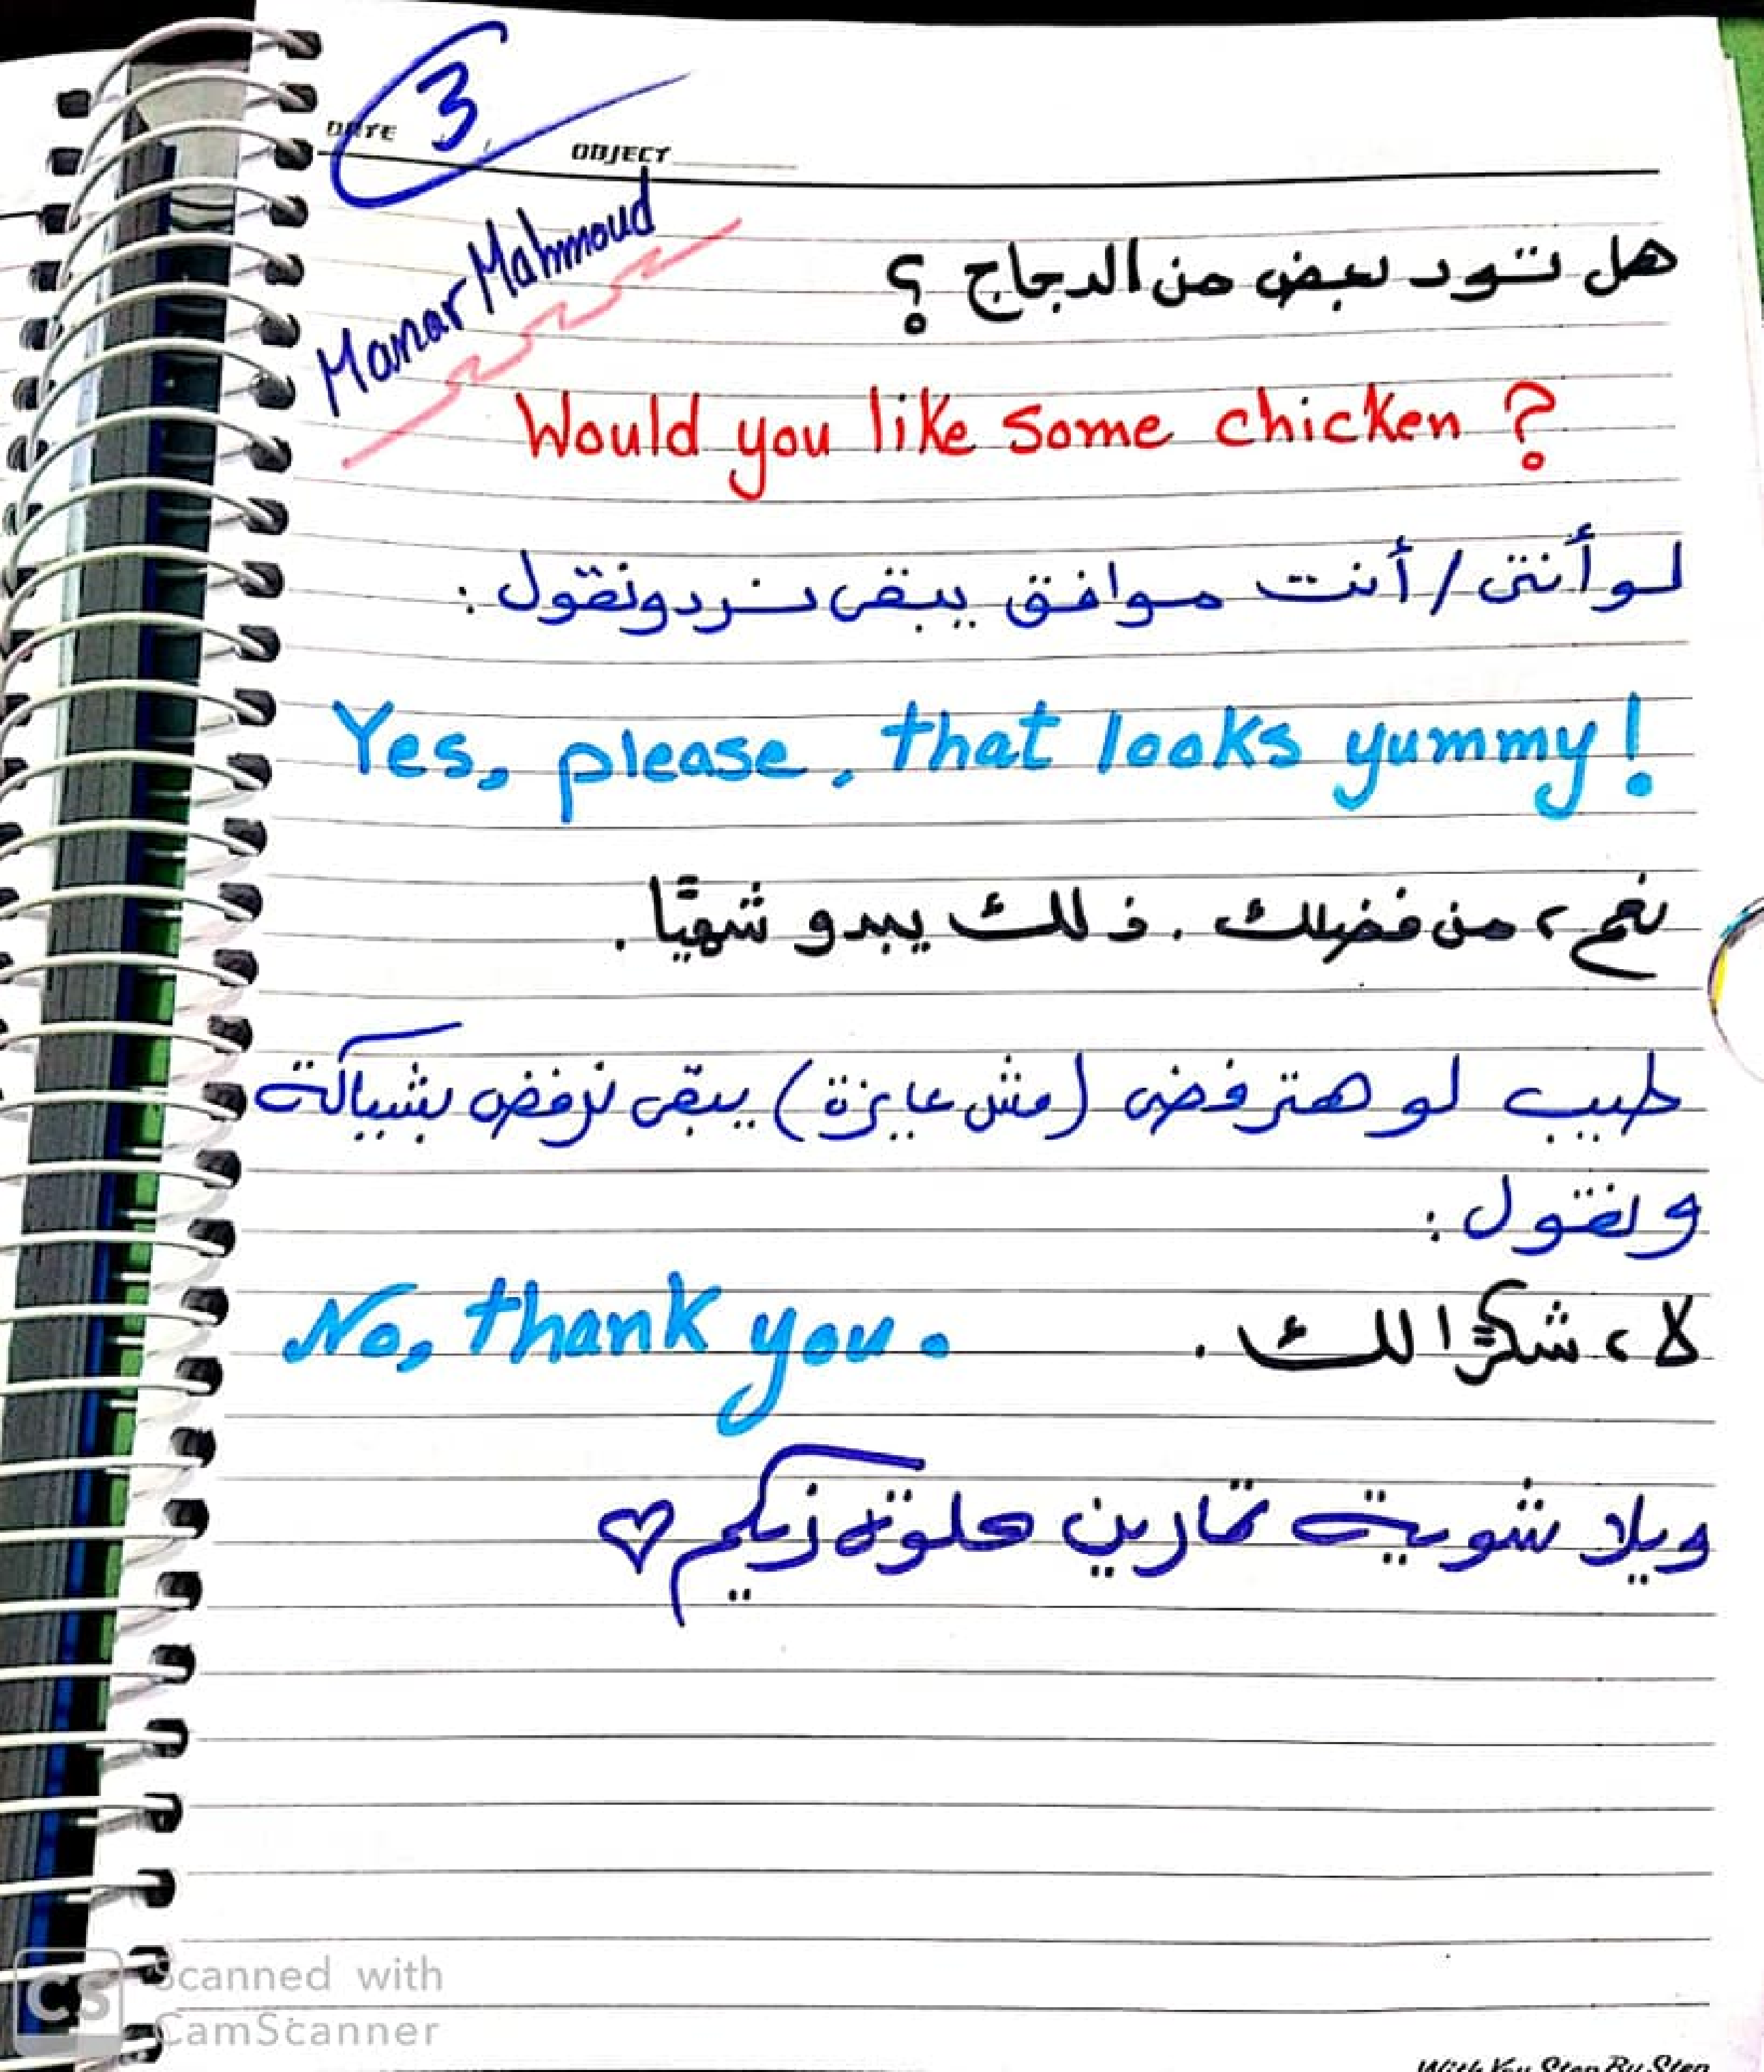 3
DATE
OBJECT
Manar Mahmoud
هل تود بعض من الدجاج ؟
Would you like some chicken ?
لو أنتى / أنت موافق يبقى نرد ونقول :
Yes, please, that looks yummy!
نعم ، من فضلك . ذلك يبدو شهيًا .
طيب لو هترفض (مش عايزة) يبقى نرفض بشياكة
ونقول :
No, thank you.
لا ، شكرًا لك .
ويلا شوية تمارين حلوة زيكم
Scanned with
CS
CamScanner
With You Step By Step